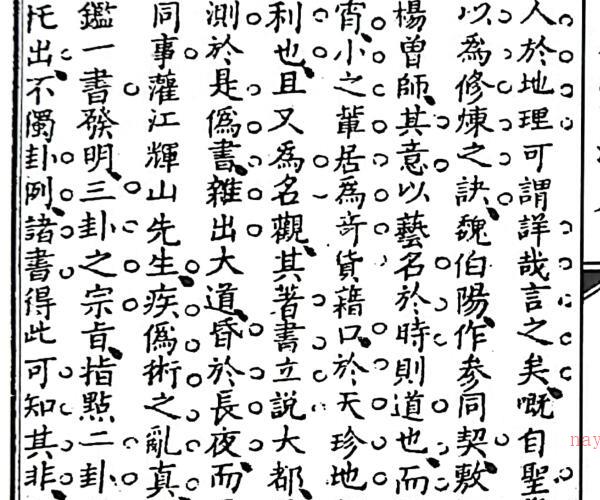 人於地理可謂詳哉言之矣嘅自聖
以為修煉之訣魏伯陽作參同契敷
楊曾師其意以藝名於時則道也而
宵小之輩居為奇貨藉口於天珍地
利也且又為名觀其著書立說大都
測於是偽書雜出大道昏於長夜而
同事灌江輝山先生疾偽術之亂真
鑑一書發明三卦之宗旨指點二卦
托出不獨卦例諸書得此可知其非
nay